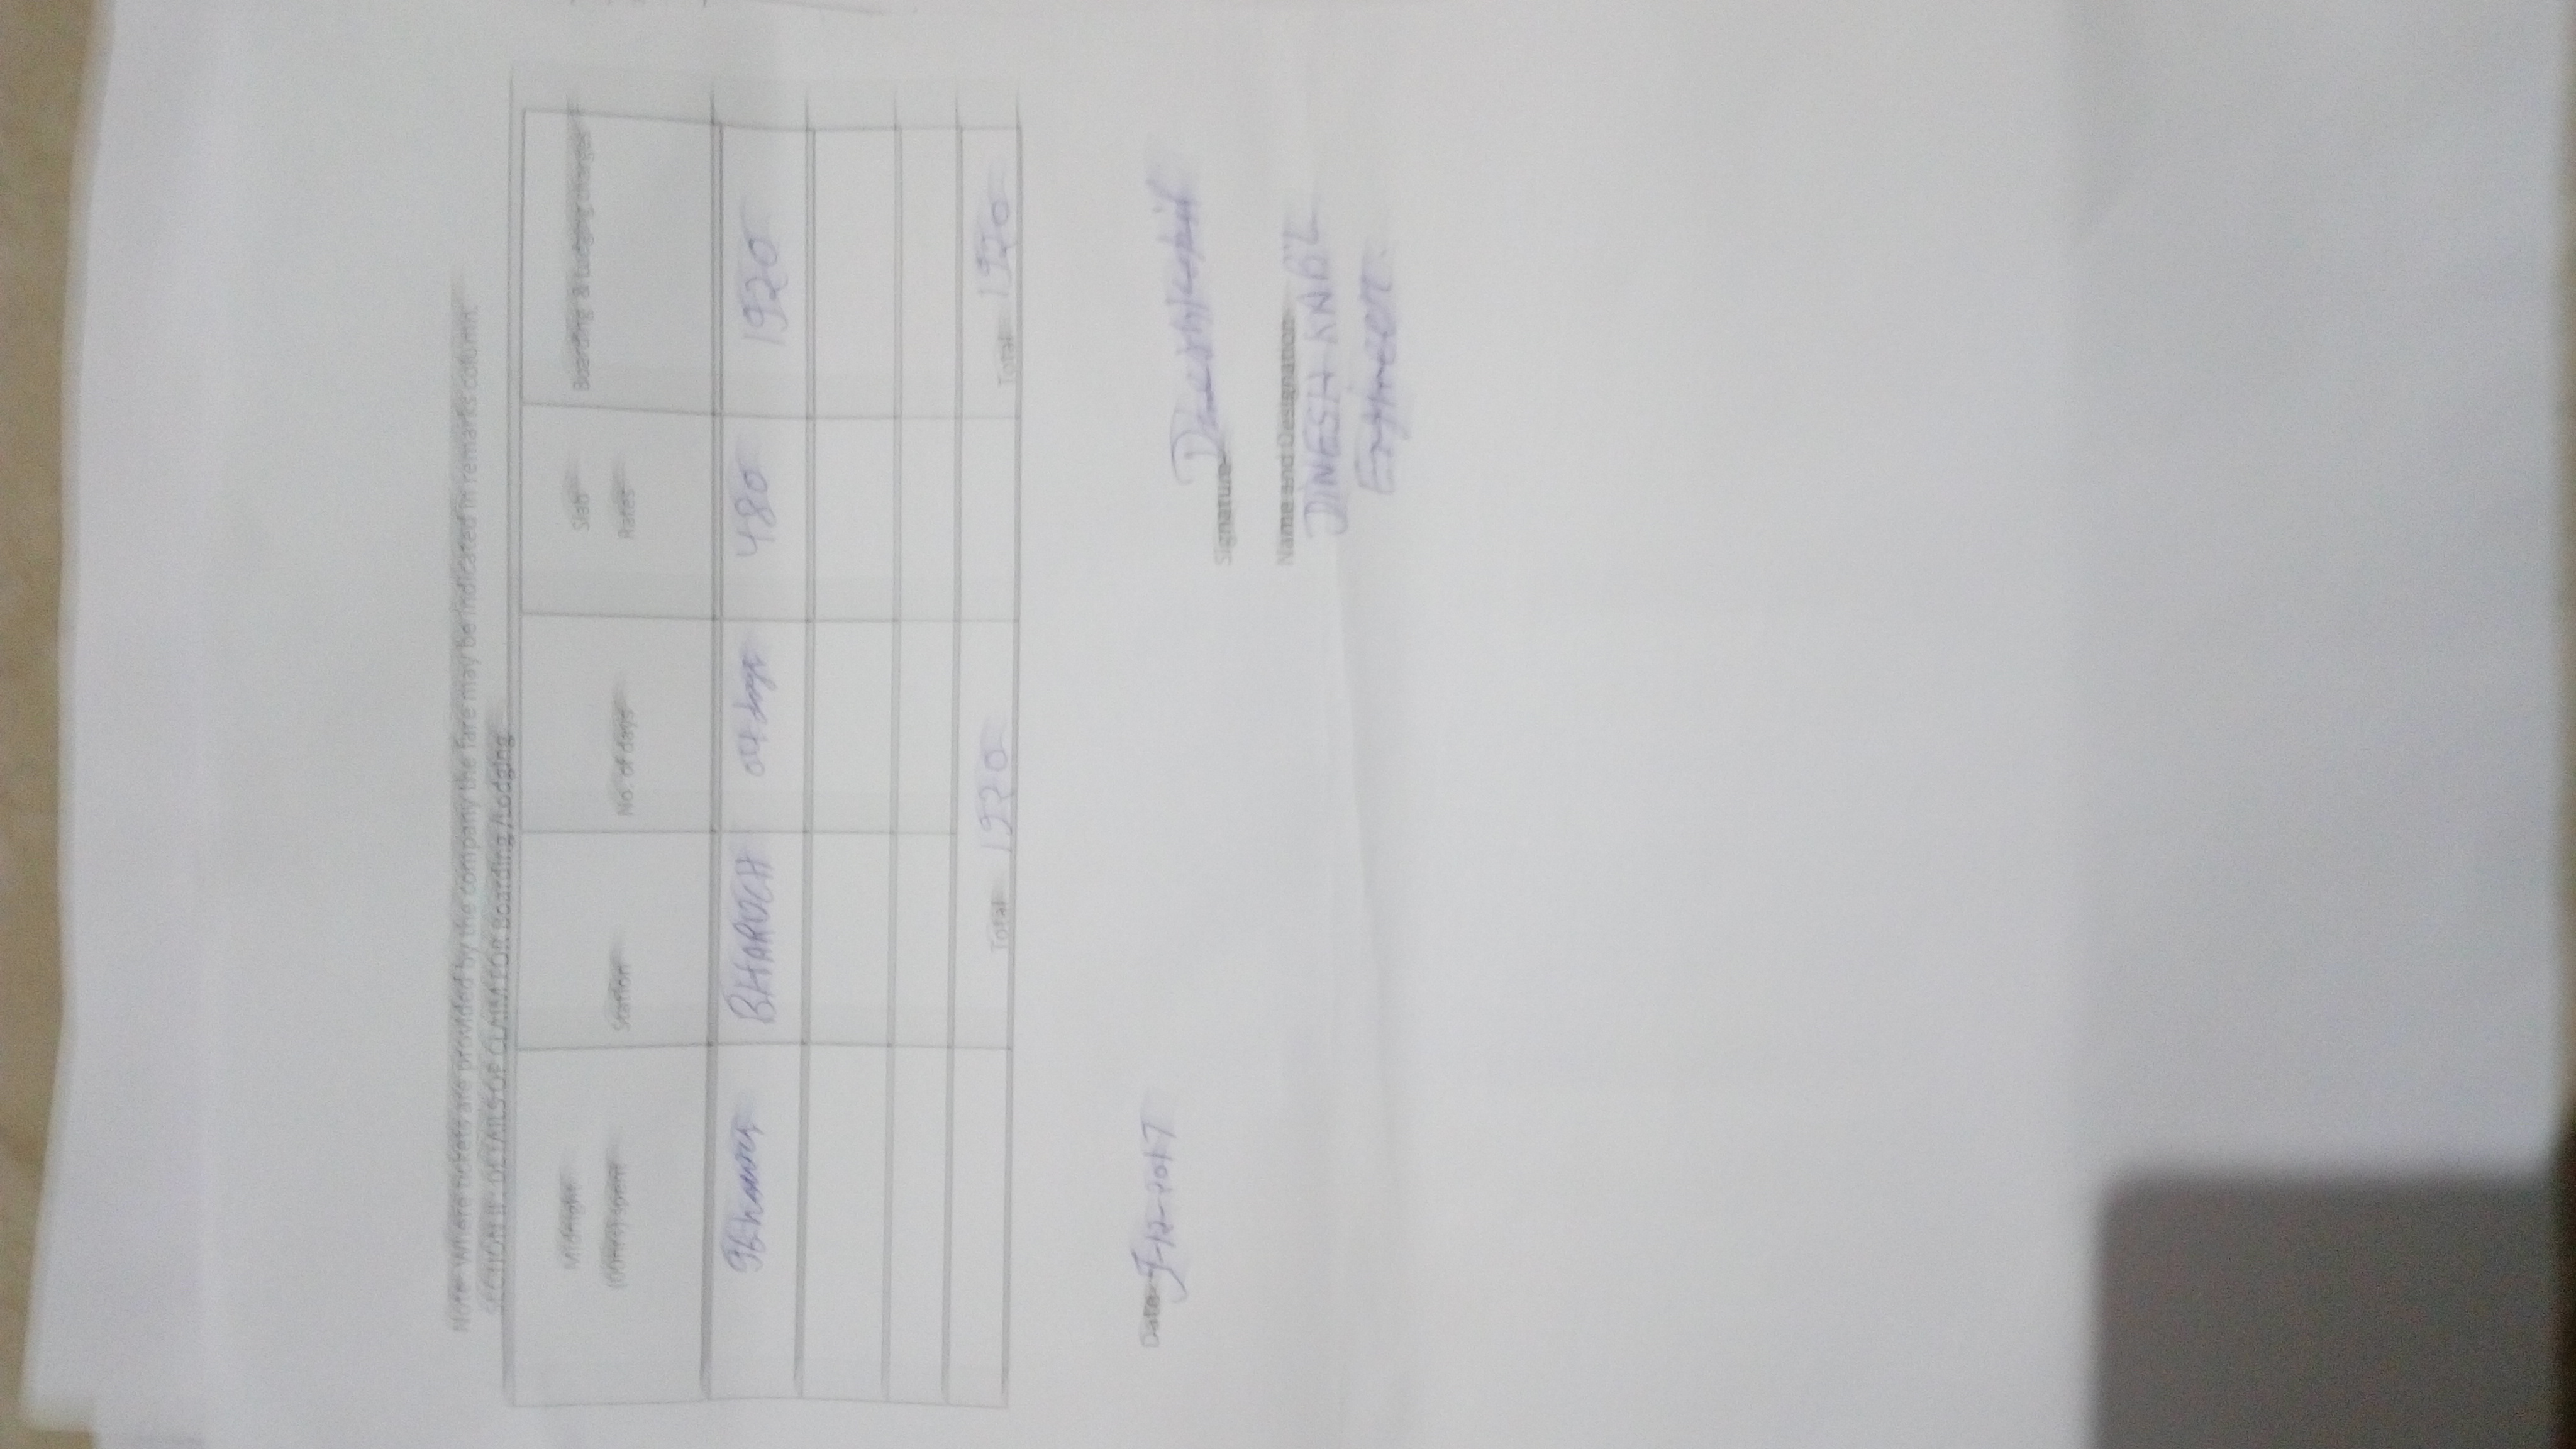 Note: Where tickets are provided by the company the fare may be indicated in remarks column.
SECTION II: DETAILS OF CLAIM FOR Boarding /Lodging
Midnight Station No. of days Slab Boarding & Lodging charges
spent Rates
96 hours BHAROCH 04 days 480 1920
Total 1920 Total 1920
Date
Signature
Name and Designation
DINESH KABIL
Engineer